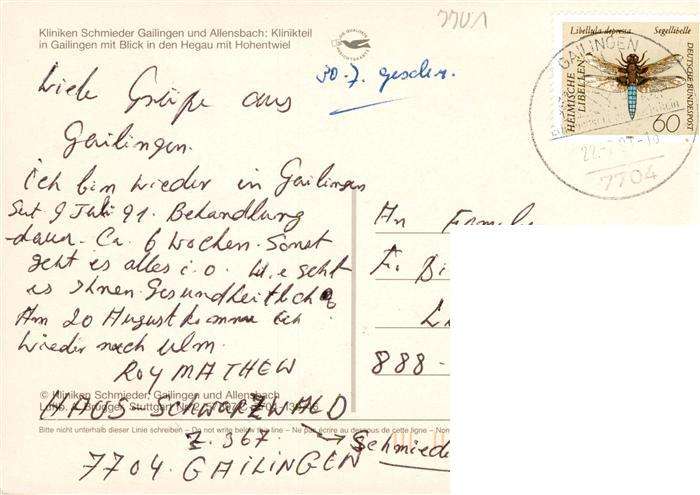 Kliniken Schmieder Gailingen und Allensbach: Klinikteil
in Gailingen mit Blick in den Hegau mit Hohentwiel
7701
30.7. geschr.
Libellula depressa Segellibelle
HEIMISCHE LIBELLEN
DEUTSCHE BUNDESPOST
60
GAILINGEN
7704
Liebe Grüße aus
Gailingen.
Ich bin wieder in Gailingen
Seit 9 Juli 91. Behandlung
dauer. Ca. 6 Wochen. Sonst
geht es alles i.o. Wie geht
es Ihnen Gesundheitlich?
Am 20 August komme ich
wieder nach Ulm.
ROY MATHEW
HAUS-SCHWARZWALD
Z. 367
Schmiede
7704. GAILINGEN
An Famil
F. Bi
888-
© Kliniken Schmieder, Gailingen und Allensbach
Bitte nicht unterhalb dieser Linie schreiben – Do not write below this line – Ne pas écrire au dessous de cette ligne – Non